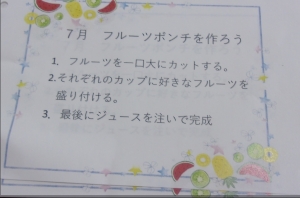 7月　フルーツポンチを作ろう
1. フルーツを一口大にカットする。
2.それぞれのカップに好きなフルーツを
盛り付ける。
3. 最後にジュースを注いで完成